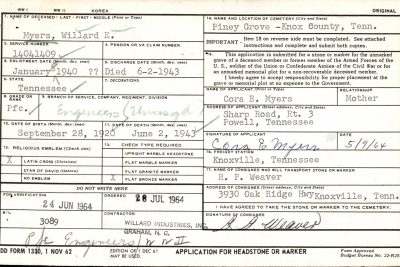 WW I WW II KOREA
1. NAME OF DECEASED - LAST - FIRST - MIDDLE (Print or Type)
Myers, Willard E.
2. SERVICE NUMBER
14041409
3. PENSION OR VA CLAIM NUMBER
4. ENLISTMENT DATE (Month, day, year)
January 1940 ??
5. DISCHARGE DATE (Month, day, year)
Died 6-2-1943
6. STATE
Tennessee
8. GRADE
Pfc.
BRANCH OF SERVICE, COMPANY, REGIMENT, DIVISION
Engineers
10. DATE OF BIRTH (Month, day, year)
September 28, 1920
11. DATE OF DEATH (Month, day, year)
June 2, 1943
12. RELIGIOUS EMBLEM (Check one)
X LATIN CROSS (Christian)
STAR OF DAVID (Hebrew)
NO EMBLEM
13. CHECK TYPE REQUIRED
UPRIGHT MARBLE HEADSTONE
FLAT MARBLE MARKER
FLAT GRANITE MARKER
X FLAT BRONZE MARKER
DO NOT WRITE HERE
FOR VERIFICATION
24 JUN 1964
ORDERED
JUL 1964
B/L
3089
CONTRACTOR
WILLARD INDUSTRIES, INC.
GRAHAM, N. C.
Pfc Engineers WW II
14. NAME OF CEMETERY LOCATION OF CEMETERY (City and State)
Piney Grove - Knox County, Tenn.
IMPORTANT: Item 18 on reverse side must be completed. See attached
instructions and complete and submit both copies.
This application is submitted for a stone or marker for the unmarked
grave of a deceased member or former member of the Armed Forces of the
U. S., soldier of the Union or Confederate Armies of the Civil War or for
an unmarked memorial plot for a non-recoverable deceased member.
I hereby agree to accept responsibility for proper placement at the
grave or memorial plot at no expense to the Government.
NAME OF APPLICANT
Cora E. Myers
RELATIONSHIP
Mother
ADDRESS OF APPLICANT (Street address, City and State)
Sharp Road, Rt. 3
Powell, Tennessee
SIGNATURE OF APPLICANT
Cora E Myers
DATE
5/9/64
16. FREIGHT STATION
Knoxville, Tennessee
17. NAME OF CONSIGNEE WHO WILL TRANSPORT STONE OR MARKER
R. P. Weaver
ADDRESS OF CONSIGNEE (Street address, City and State)
3930 Oak Ridge Hwy Knoxville, Tenn.
I HAVE AGREED TO TAKE THE STONE OR MARKER TO THE CEMETERY.
SIGNATURE OF CONSIGNEE
Weaver
DD FORM 1330, 1 NOV 62
EDITION OF 1 DEC 61
MAY BE USED.
APPLICATION FOR HEADSTONE OR MARKER
Form Approved